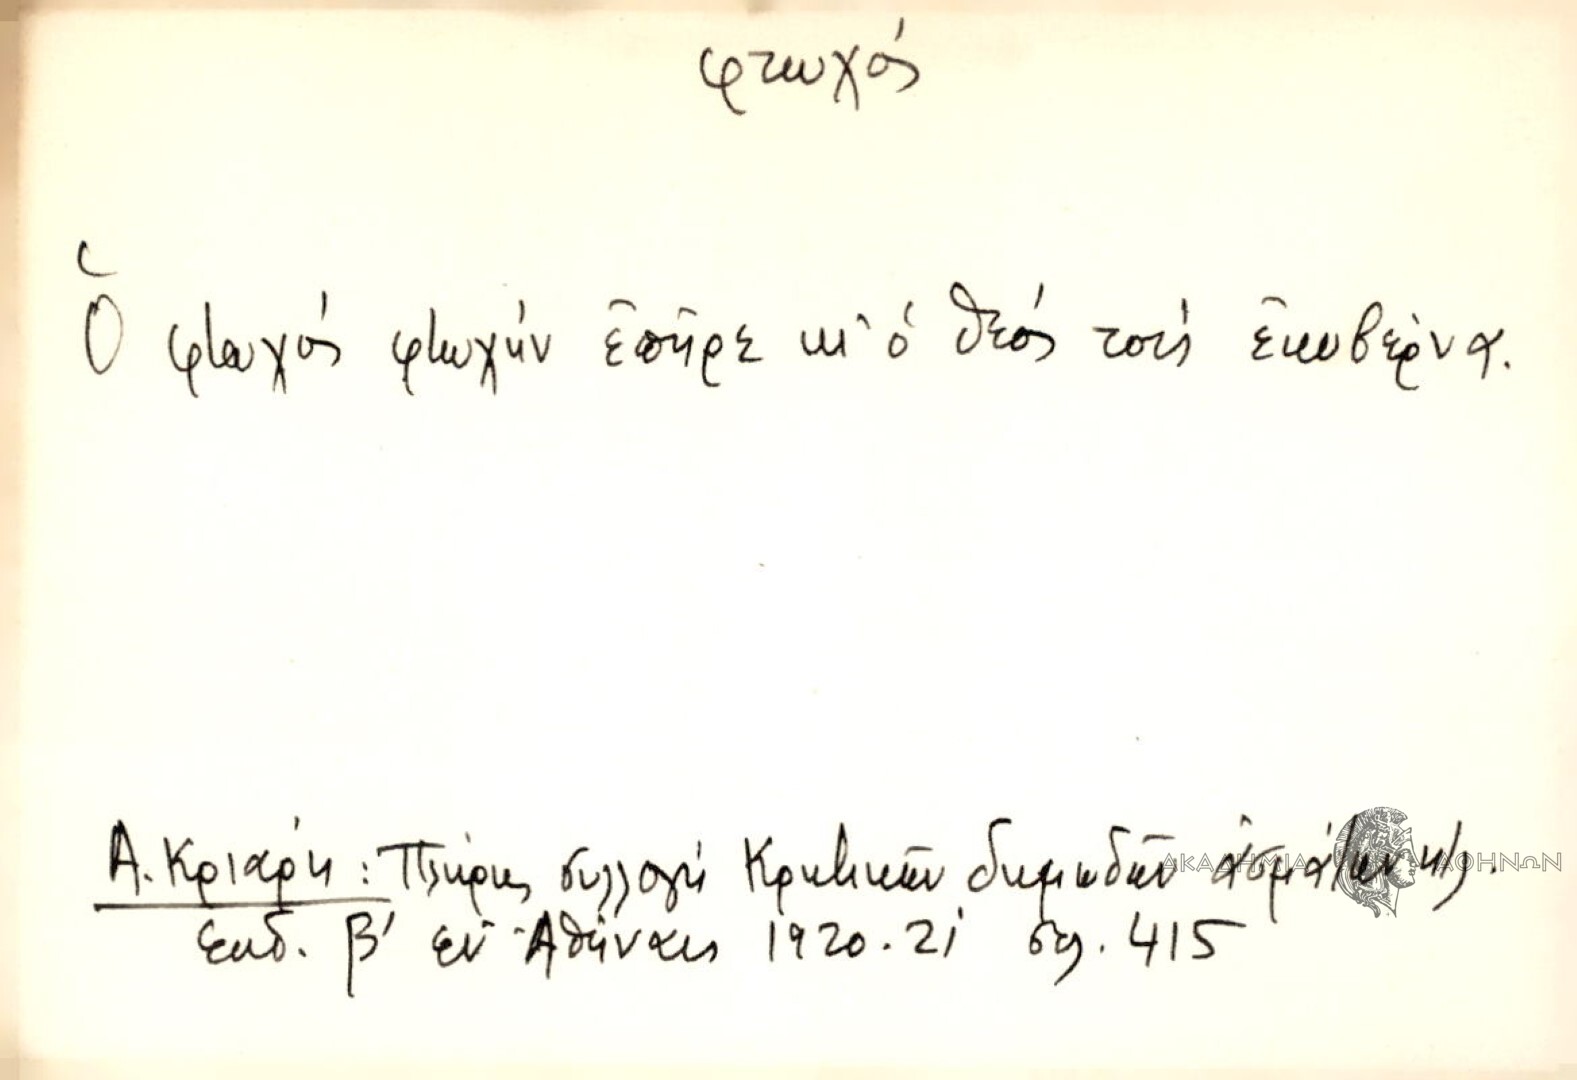 φτωχός
Ὁ φτωχός φτωχήν ἐπῆρε κι' ὁ θεός τούς ἐκυβέρνα.
Α. Κριάρη: Πλήρης συλλογή Κρητικῶν δημωδῶν ἀσμάτων κλ.
ΑΚΑΔΗΜΙΑ ΑΘΗΝΩΝ
ἐκδ. β' ἐν Ἀθήναις 1920-21 σελ. 415